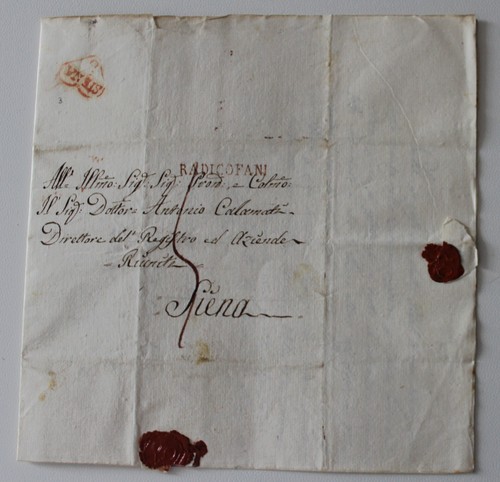 SIENA
RADICOFANI
All' Illmo Sigr Sigr Pron e Colmo
Il Sigr Dottore Antonio Calamati
Direttore del Registro ed Aziende
Riunite
Siena